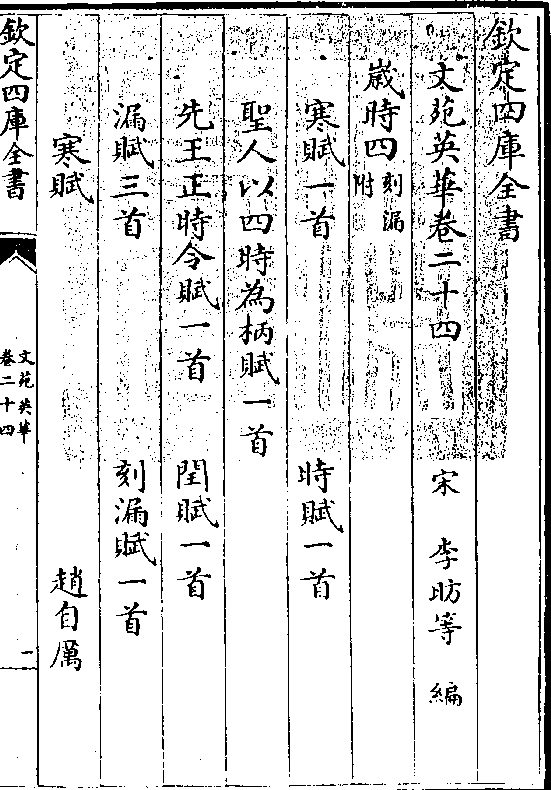 欽定四庫全書
文苑英華卷二十四
宋 李昉等 編
歲時四 刻漏附
寒賦一首 時賦一首
聖人以四時為柄賦一首
先王正時令賦一首 閏賦一首
漏賦三首 刻漏賦一首
寒賦 趙自厲
欽定四庫全書
文苑英華
卷二十四
一